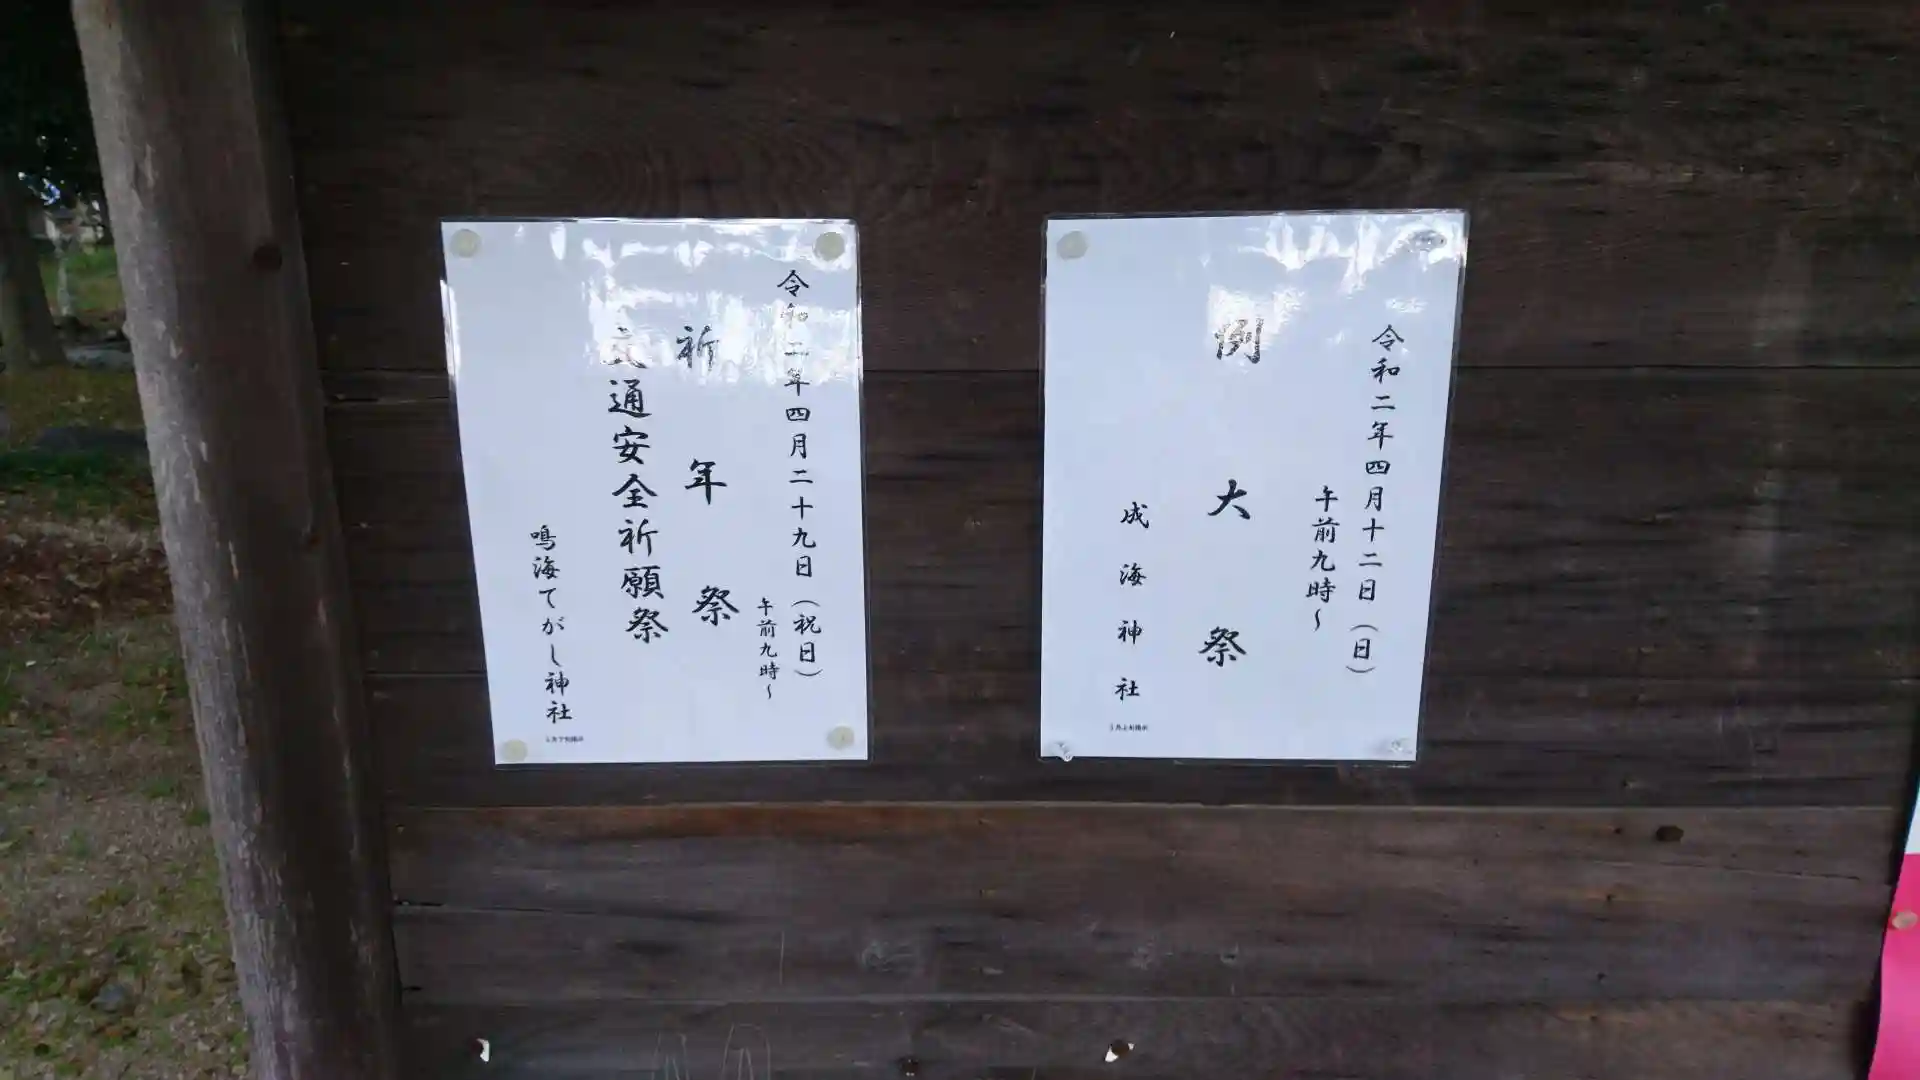 令和二年四月十二日（日）
午前九時～
例大祭
成海神社
令和二年四月二十九日（祝日）
午前九時～
祈年祭
交通安全祈願祭
鳴海てがし神社